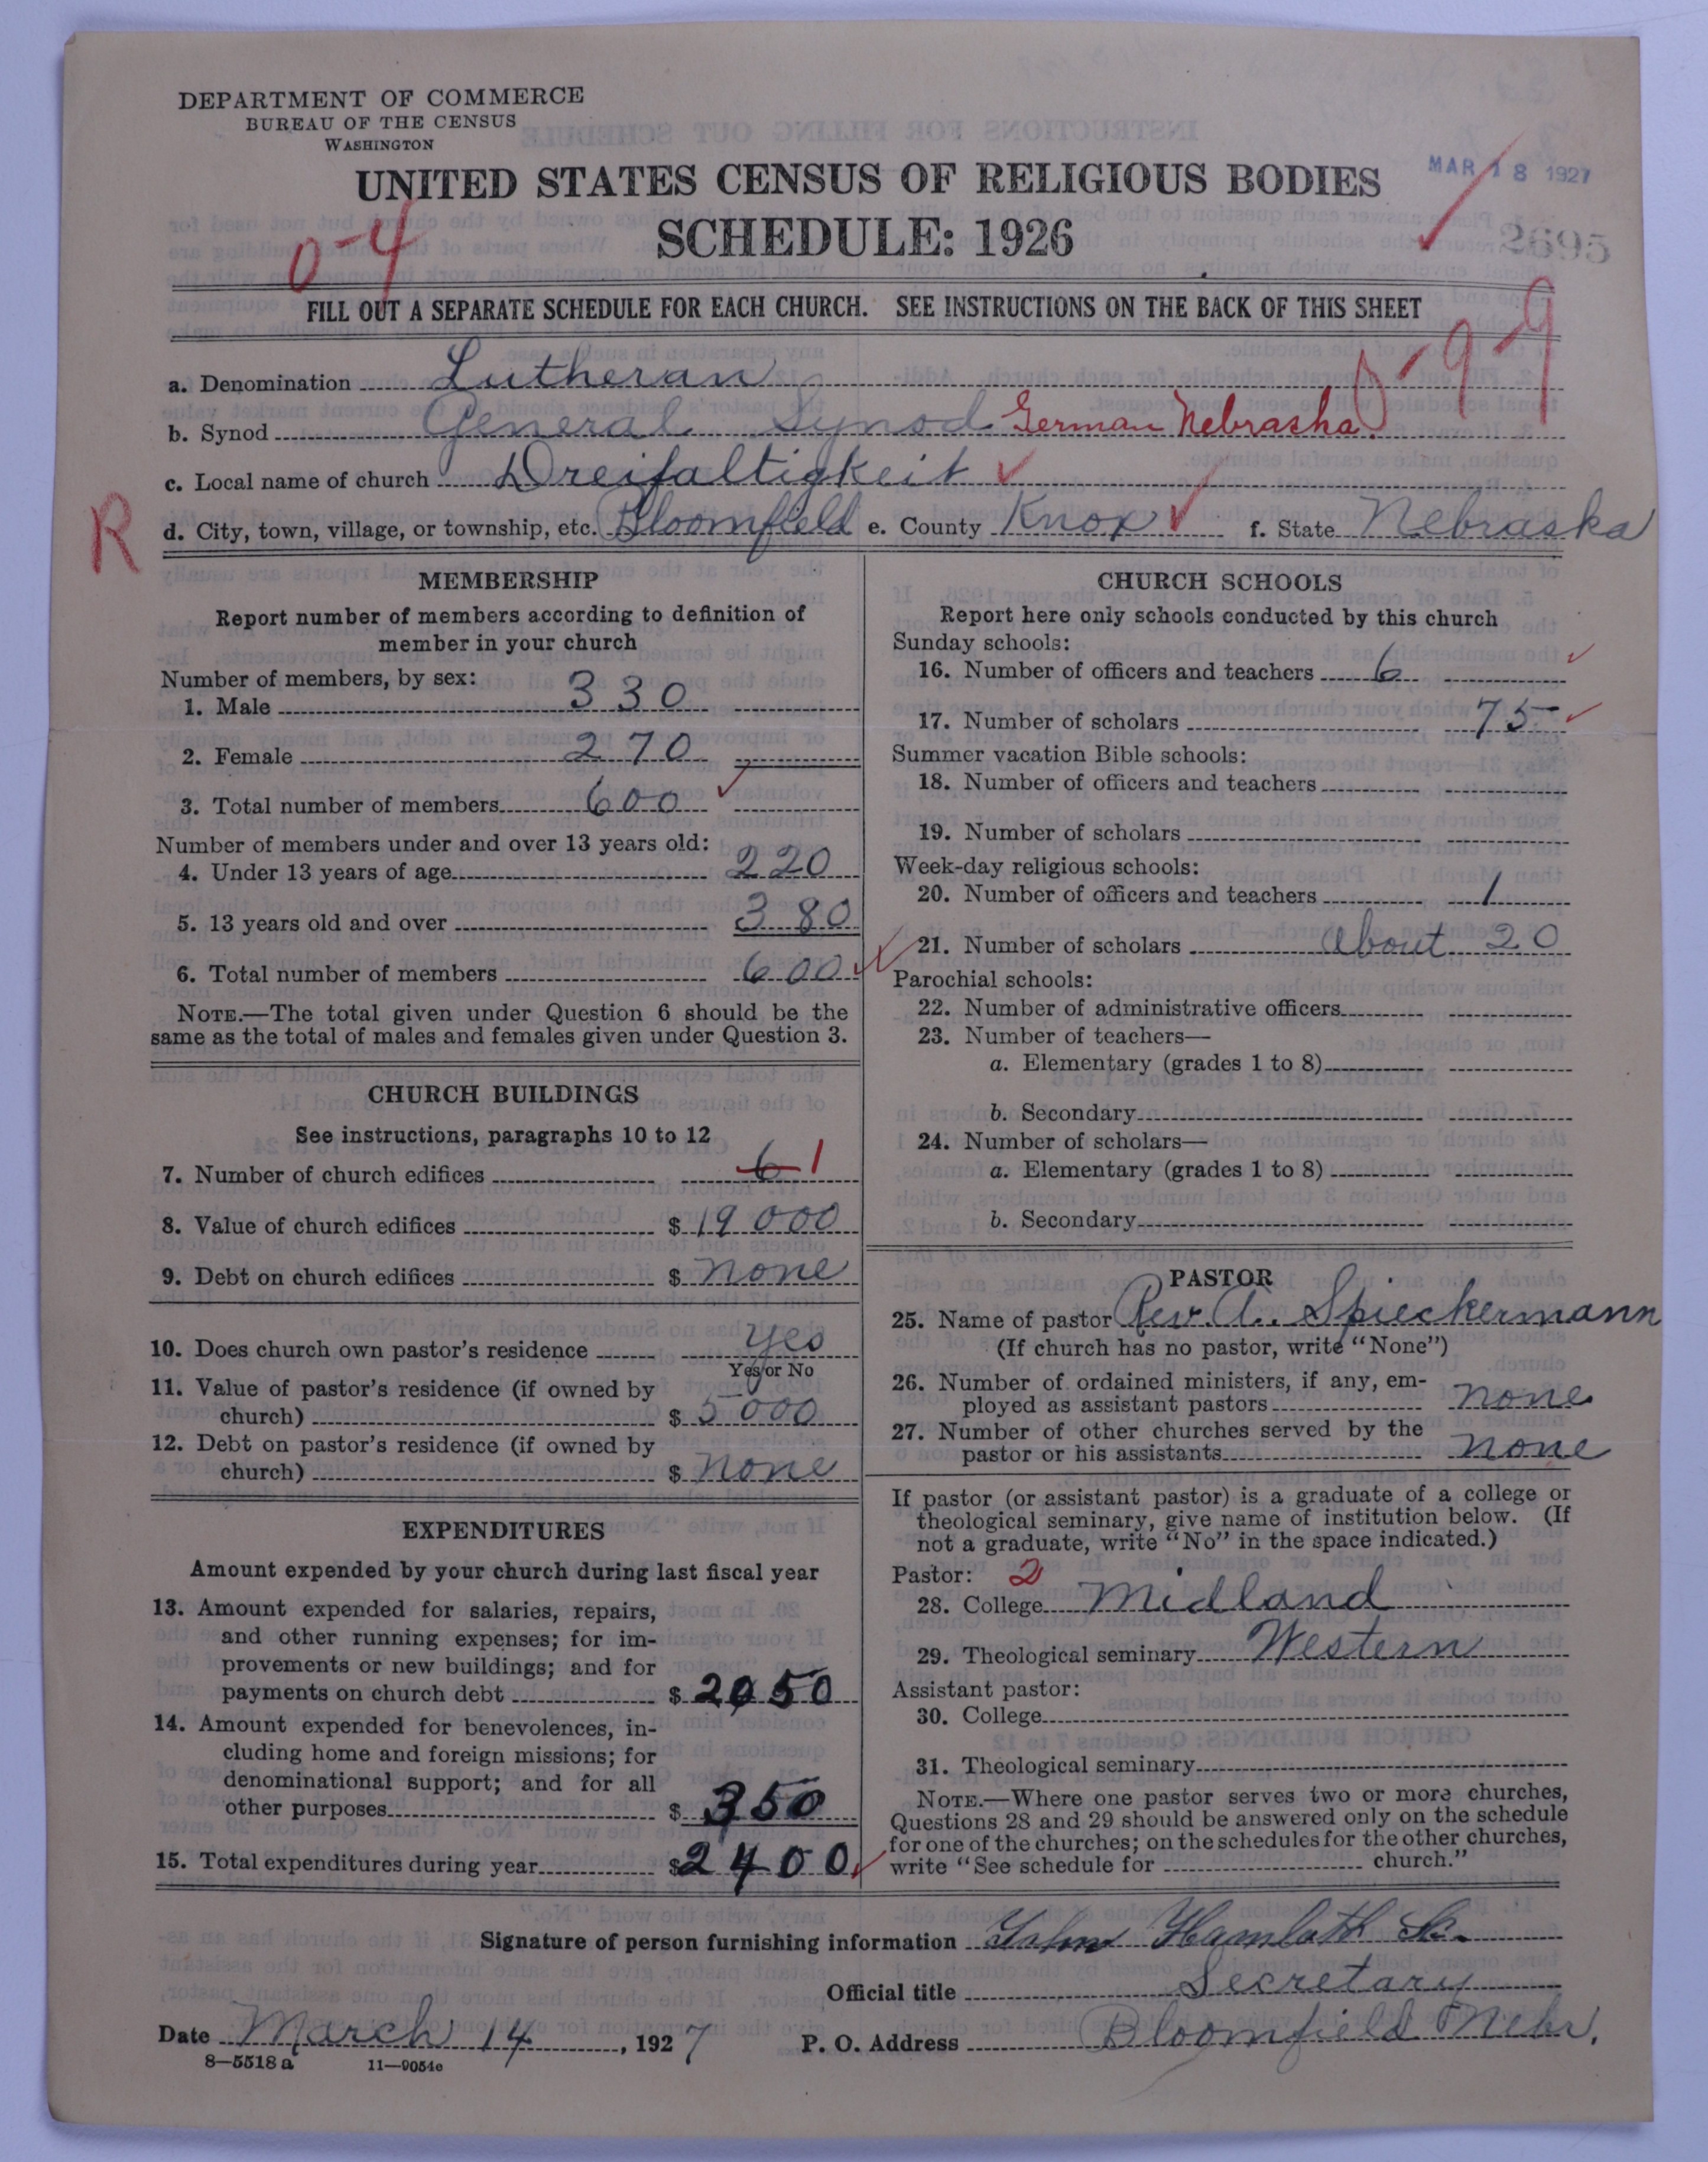 DEPARTMENT OF COMMERCE
BUREAU OF THE CENSUS
WASHINGTON
UNITED STATES CENSUS OF RELIGIOUS BODIES
MAR 18 1927
SCHEDULE: 1926
2695
0-4
FILL OUT A SEPARATE SCHEDULE FOR EACH CHURCH. SEE INSTRUCTIONS ON THE BACK OF THIS SHEET
0-9-9
a. Denomination Lutheran
b. Synod General Synod German Nebraska.
c. Local name of church Dreifaltigkeit
R
d. City, town, village, or township, etc. Bloomfield e. County Knox f. State Nebraska
MEMBERSHIP
Report number of members according to definition of
member in your church
Number of members, by sex:
1. Male 330
2. Female 270
3. Total number of members 600
Number of members under and over 13 years old:
4. Under 13 years of age 220
5. 13 years old and over 380
6. Total number of members 600
NOTE.—The total given under Question 6 should be the
same as the total of males and females given under Question 3.
CHURCH BUILDINGS
See instructions, paragraphs 10 to 12
7. Number of church edifices 6 1
8. Value of church edifices $ 19000
9. Debt on church edifices $ none
10. Does church own pastor's residence yes
Yes or No
11. Value of pastor's residence (if owned by
church) $ 5000
12. Debt on pastor's residence (if owned by
church) $ none
EXPENDITURES
Amount expended by your church during last fiscal year
13. Amount expended for salaries, repairs,
and other running expenses; for im-
provements or new buildings; and for
payments on church debt $ 2050
14. Amount expended for benevolences, in-
cluding home and foreign missions; for
denominational support; and for all
other purposes $ 350
15. Total expenditures during year $ 2400
CHURCH SCHOOLS
Report here only schools conducted by this church
Sunday schools:
16. Number of officers and teachers 6
17. Number of scholars 75
Summer vacation Bible schools:
18. Number of officers and teachers
19. Number of scholars
Week-day religious schools:
20. Number of officers and teachers 1
21. Number of scholars about 20
Parochial schools:
22. Number of administrative officers
23. Number of teachers—
a. Elementary (grades 1 to 8)
b. Secondary
24. Number of scholars—
a. Elementary (grades 1 to 8)
b. Secondary
PASTOR
25. Name of pastor Rev. A. Spieckermann
(If church has no pastor, write "None")
26. Number of ordained ministers, if any, em-
ployed as assistant pastors none
27. Number of other churches served by the
pastor or his assistants none
If pastor (or assistant pastor) is a graduate of a college or
theological seminary, give name of institution below. (If
not a graduate, write "No" in the space indicated.)
Pastor: 2
28. College Midland
29. Theological seminary Western
Assistant pastor:
30. College
31. Theological seminary
NOTE.—Where one pastor serves two or more churches,
Questions 28 and 29 should be answered only on the schedule
for one of the churches; on the schedules for the other churches,
write "See schedule for church."
Signature of person furnishing information John
Official title Secretary
Date March 14, 1927 P. O. Address Bloomfield Nebr.
8—5518 a 11—9054c